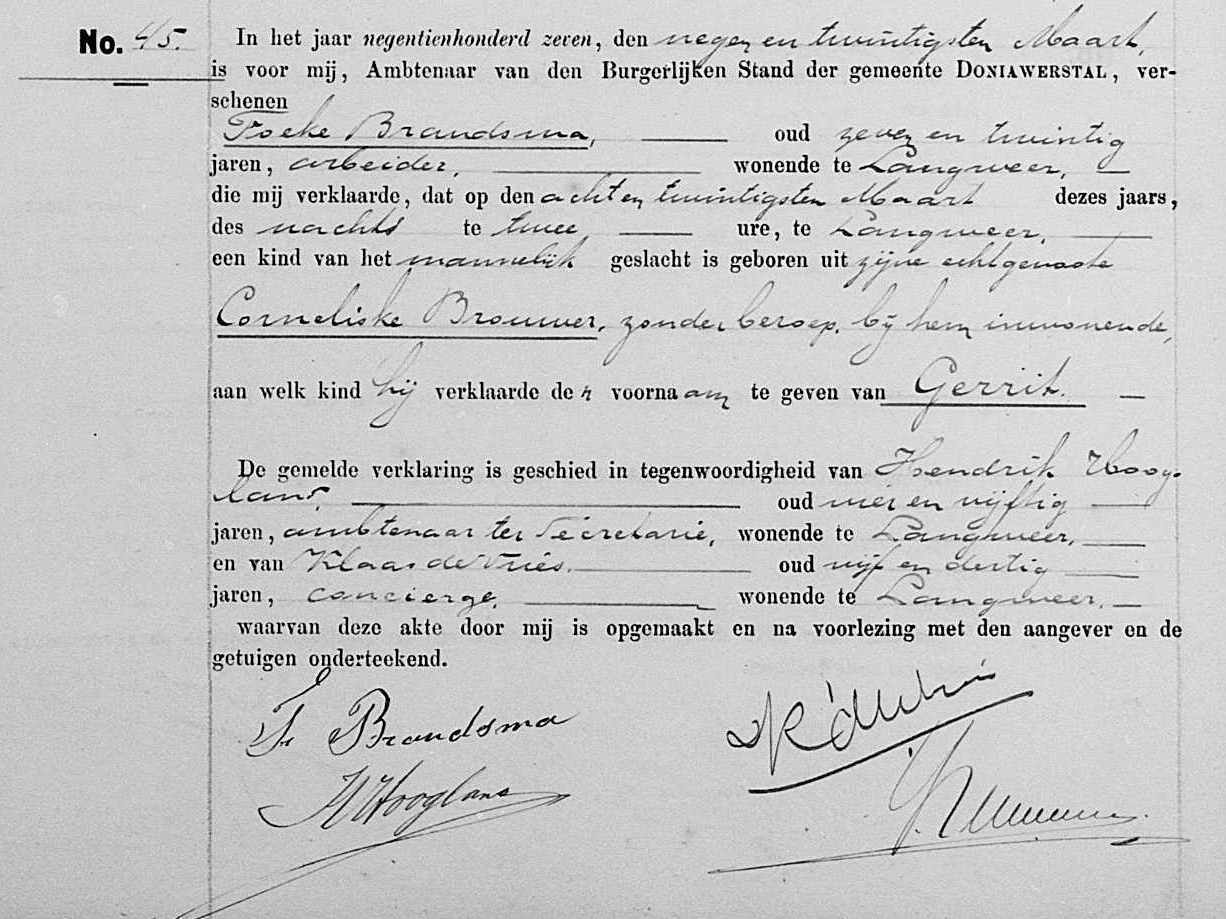 No. 45. In het jaar negentienhonderd zeven, den negen en twintigsten Maart,
is voor mij, Ambtenaar van den Burgerlijken Stand der gemeente DONIAWERSTAL, ver-
schenen
Foeke Brandsma, oud zeven en twintig
jaren, arbeider, wonende te Langweer,
die mij verklaarde, dat op den acht en twintigsten Maart dezes jaars,
des nachts te twee ure, te Langweer,
een kind van het mannelijk geslacht is geboren uit zijne echtgenoote
Corneliske Brouwer, zonder beroep, bij hem inwonende,
aan welk kind hij verklaarde den voornaam te geven van Gerrit.
De gemelde verklaring is geschied in tegenwoordigheid van Hendrik Hoog-
lans, oud vier en vijftig
jaren, ambtenaar ter Secretarie, wonende te Langweer,
en van Klaas de Vries, oud vijf en dertig
jaren, concierge, wonende te Langweer,
waarvan deze akte door mij is opgemaakt en na voorlezing met den aangever en de
getuigen onderteekend.
F Brandsma
K de Vries
H Hooglans